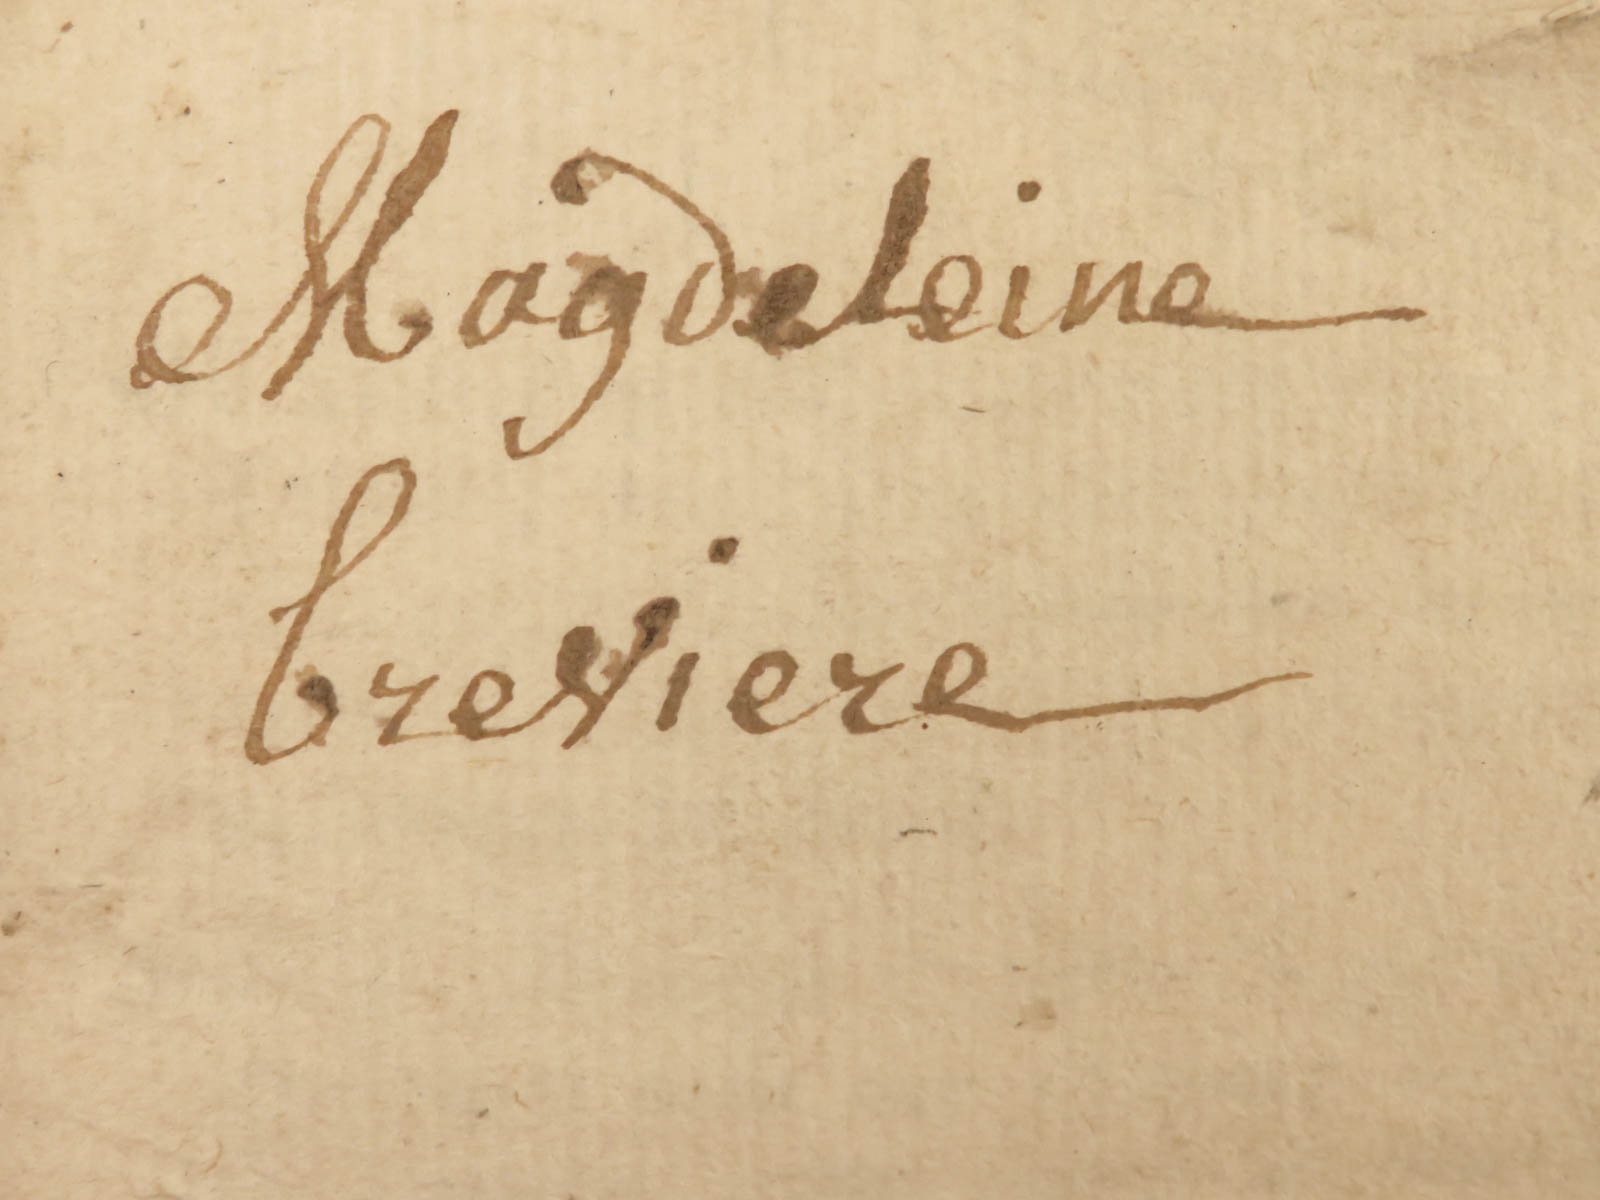 Magdeleine
breviere